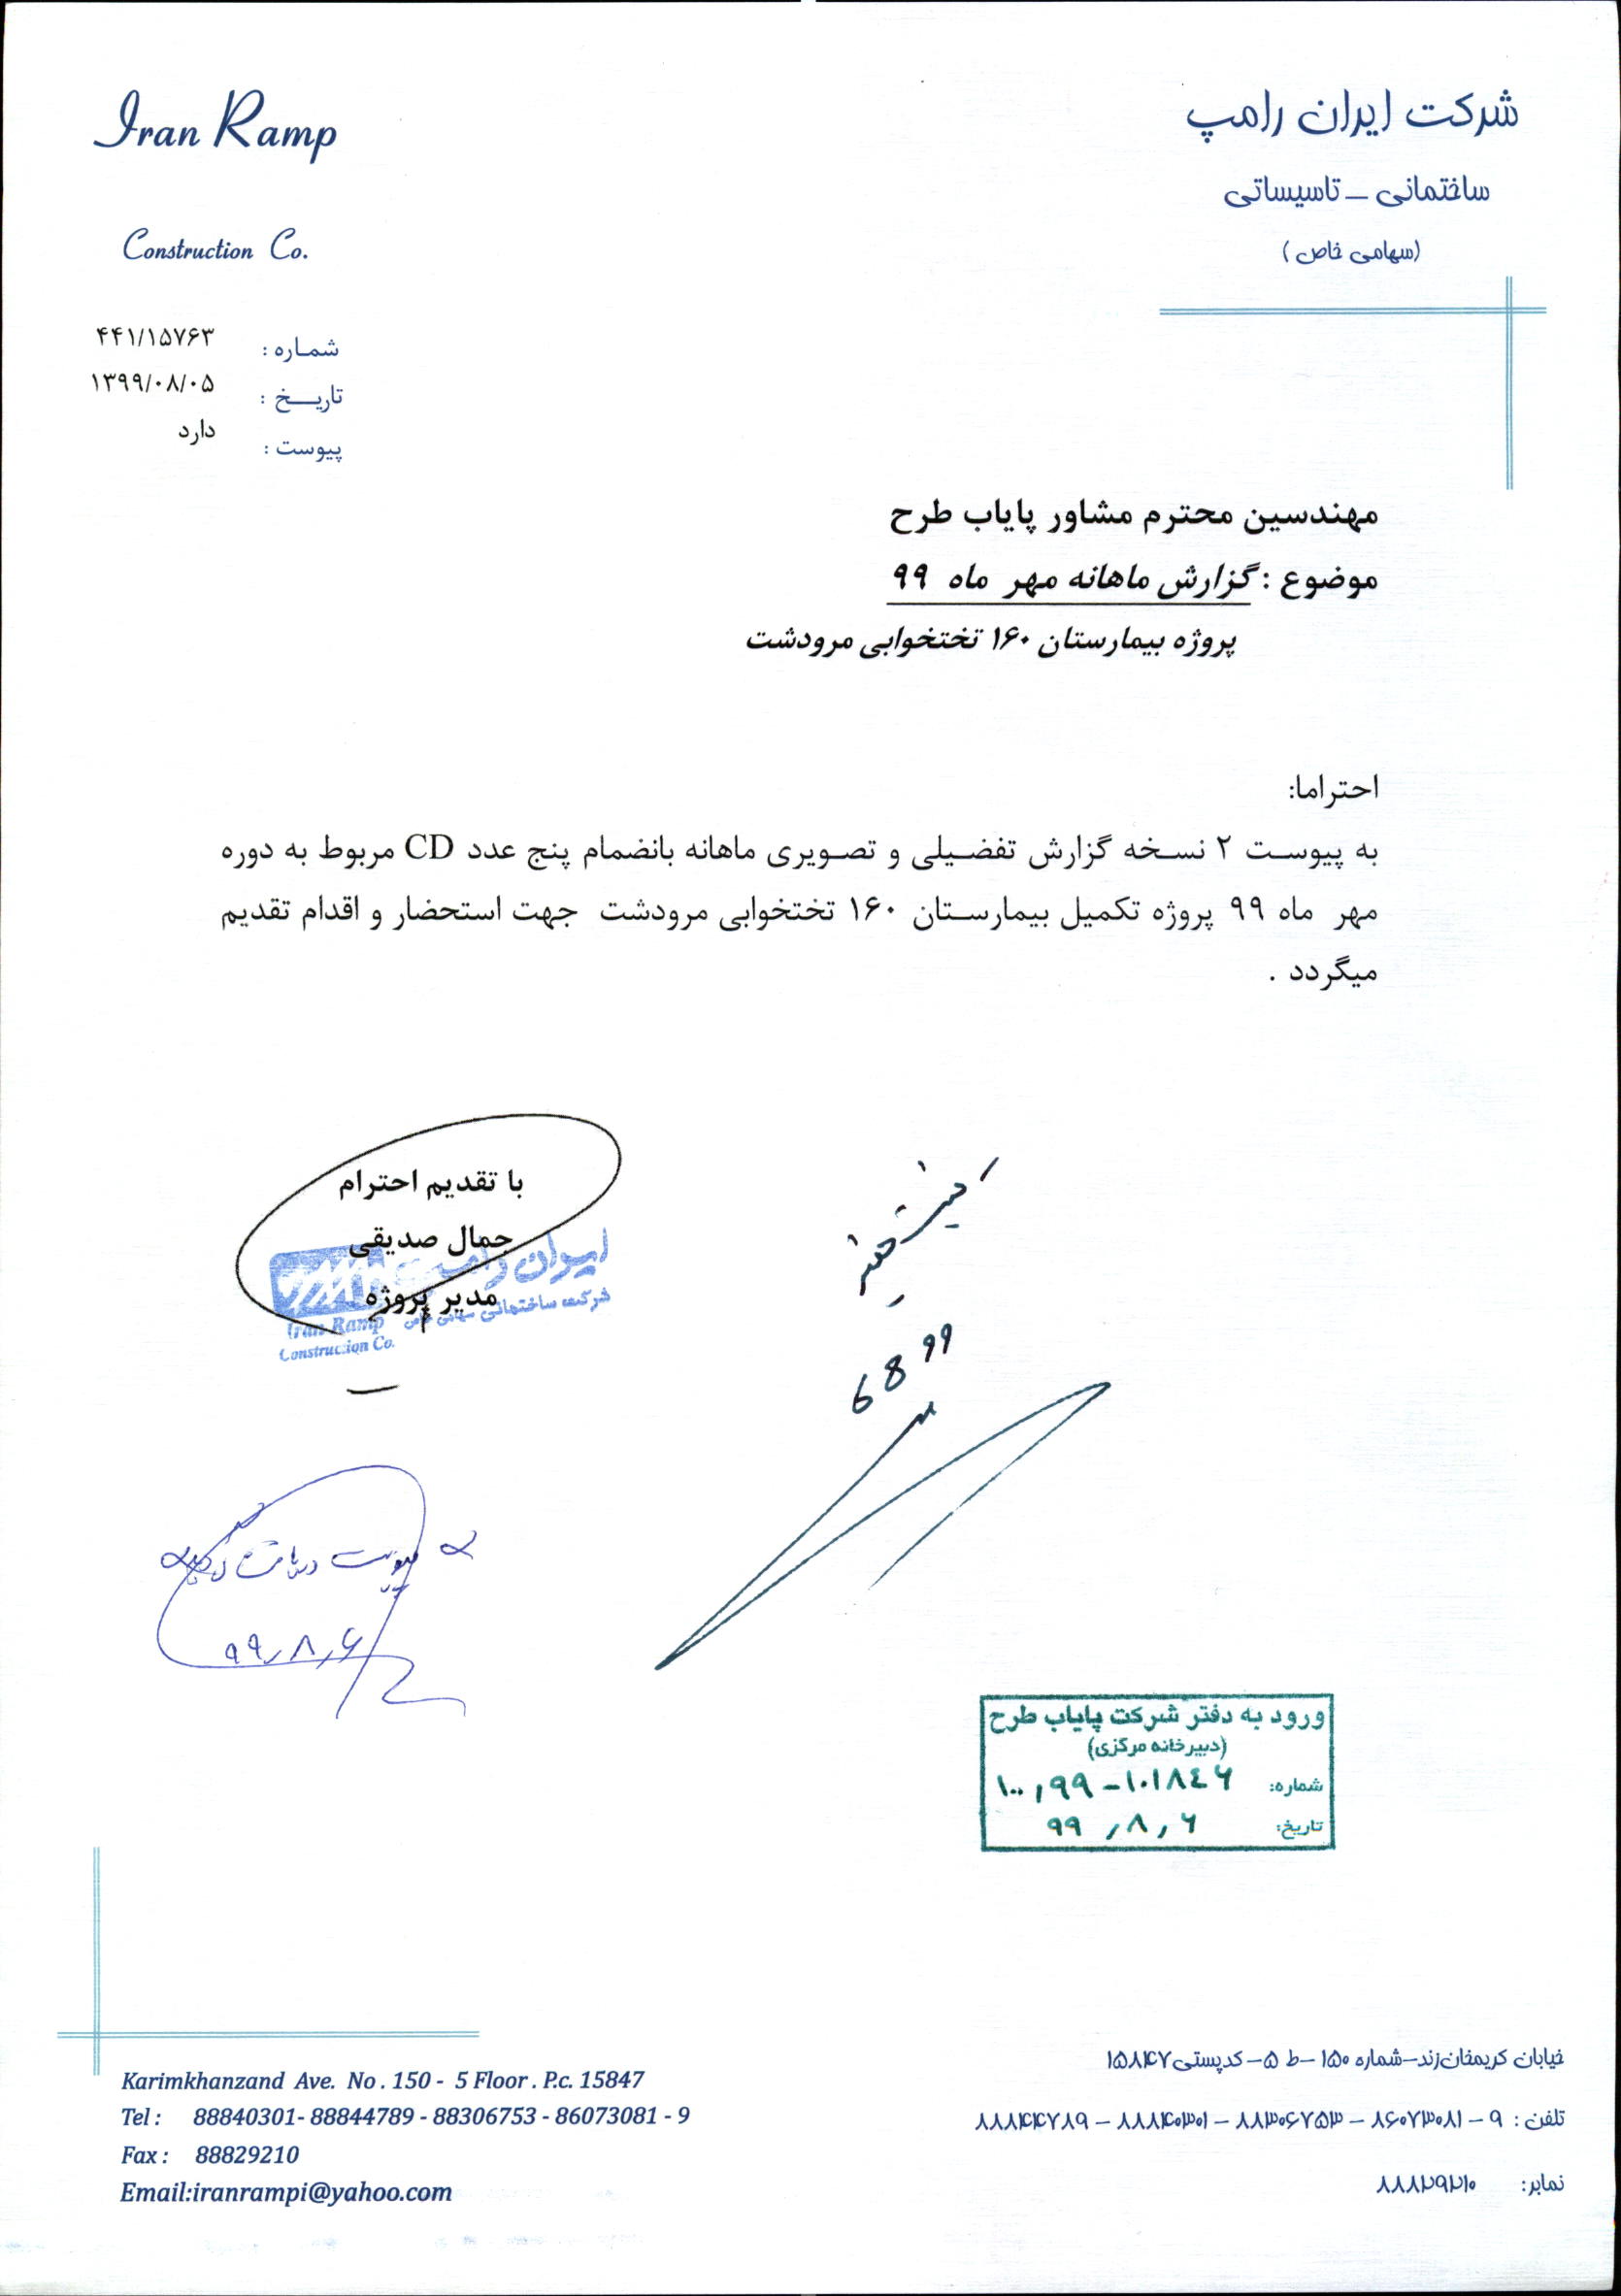 Iran Ramp
Construction Co.
شرکت ایران رامپ
ساختمانی – تاسیساتی
(سهامی خاص)
شماره : ۴۴۱/۱۵۷۶۳
تاریخ : ۱۳۹۹/۰۸/۰۵
پیوست : دارد
مهندسین محترم مشاور پایاب طرح
موضوع : گزارش ماهانه مهر ماه ۹۹
پروژه بیمارستان ۱۶۰ تختخوابی مرودشت
احتراما:
به پیوست ۲ نسخه گزارش تفضیلی و تصویری ماهانه بانضمام پنج عدد CD مربوط به دوره
مهر ماه ۹۹ پروژه تکمیل بیمارستان ۱۶۰ تختخوابی مرودشت جهت استحضار و اقدام تقدیم
میگردد .
با تقدیم احترام
جمال صدیقی
مدیر پروژه
ایران رامپ
شرکت ساختمانی سهامی خاص
Iran Ramp
Construction Co.
99 8 6
پیوست دریافت
۹۹/۸/۶
ورود به دفتر شرکت پایاب طرح
(دبیرخانه مرکزی)
شماره: ۱۰۰/۹۹-۱۰۱۸۴۶
تاریخ: ۹۹/۸/۶
Karimkhanzand Ave. No . 150 - 5 Floor . P.c. 15847
Tel : 88840301- 88844789 - 88306753 - 86073081 - 9
Fax : 88829210
Email:iranrampi@yahoo.com
خیابان کریمخان‌زند–شماره ۱۵۰ –ط ۵– کدپستی ۱۵۸۴۷
تلفن : ۹ – ۸۶۰۷۳۰۸۱ – ۸۸۳۰۶۷۵۳ – ۸۸۸۴۰۳۰۱ – ۸۸۸۴۴۷۸۹
نمابر: ۸۸۸۲۹۲۱۰